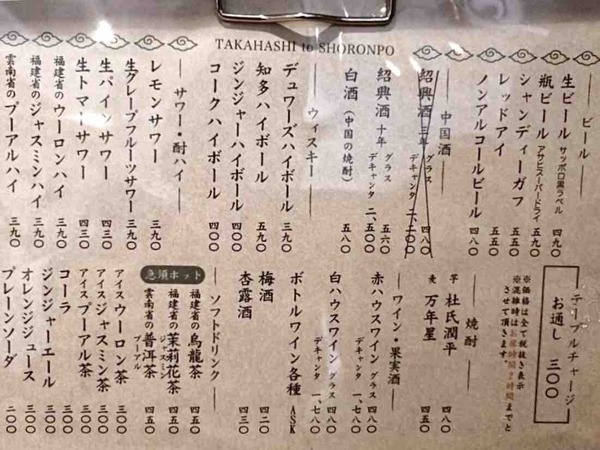 TAKAHASHI to SHORONPO
―ビール―
生ビール サッポロ黒ラベル 四九〇
瓶ビール アサヒスーパードライ 五九〇
シャンディーガフ 五五〇
レッドアイ 五五〇
ノンアルコールビール 四八〇
―中国酒―
紹興酒 三年 グラス 四八〇
デキャンタ 二、二〇〇
紹興酒 十年 グラス 五六〇
デキャンタ 二、五〇〇
白酒(中国の焼酎) 五八〇
―ウィスキー―
デュワーズハイボール 三九〇
知多ハイボール 五九〇
ジンジャーハイボール 四〇〇
コークハイボール 四〇〇
―サワー・酎ハイ―
レモンサワー 三九〇
生グレープフルーツサワー 四三〇
生パインサワー 四三〇
生トマトサワー 四三〇
福建省のウーロンハイ 三九〇
福建省のジャスミンハイ 三九〇
雲南省のプーアルハイ 三九〇
テーブルチャージ
お通し 三〇〇
※価格は全て税抜き表示
※混雑時はお席時間2時間までと
させて頂きます。
―焼酎―
芋 杜氏潤平 四八〇
麦 万年星 四五〇
―ワイン・果実酒―
赤ハウスワイン グラス 四八〇
デキャンタ 一、七八〇
白ハウスワイン グラス 四八〇
デキャンタ 一、七八〇
ボトルワイン各種 ASK
梅酒 四二〇
杏露酒 四三〇
―ソフトドリンク―
急須ホット
福建省の烏龍茶 四五〇
福建省の茉莉花茶 ジャスミン 四五〇
雲南省の普洱茶 プーアル 四五〇
アイスウーロン茶 三〇〇
アイスジャスミン茶 三〇〇
アイスプーアル茶 三〇〇
コーラ 三〇〇
ジンジャーエール 三〇〇
オレンジジュース 三〇〇
プレーンソーダ 二〇〇